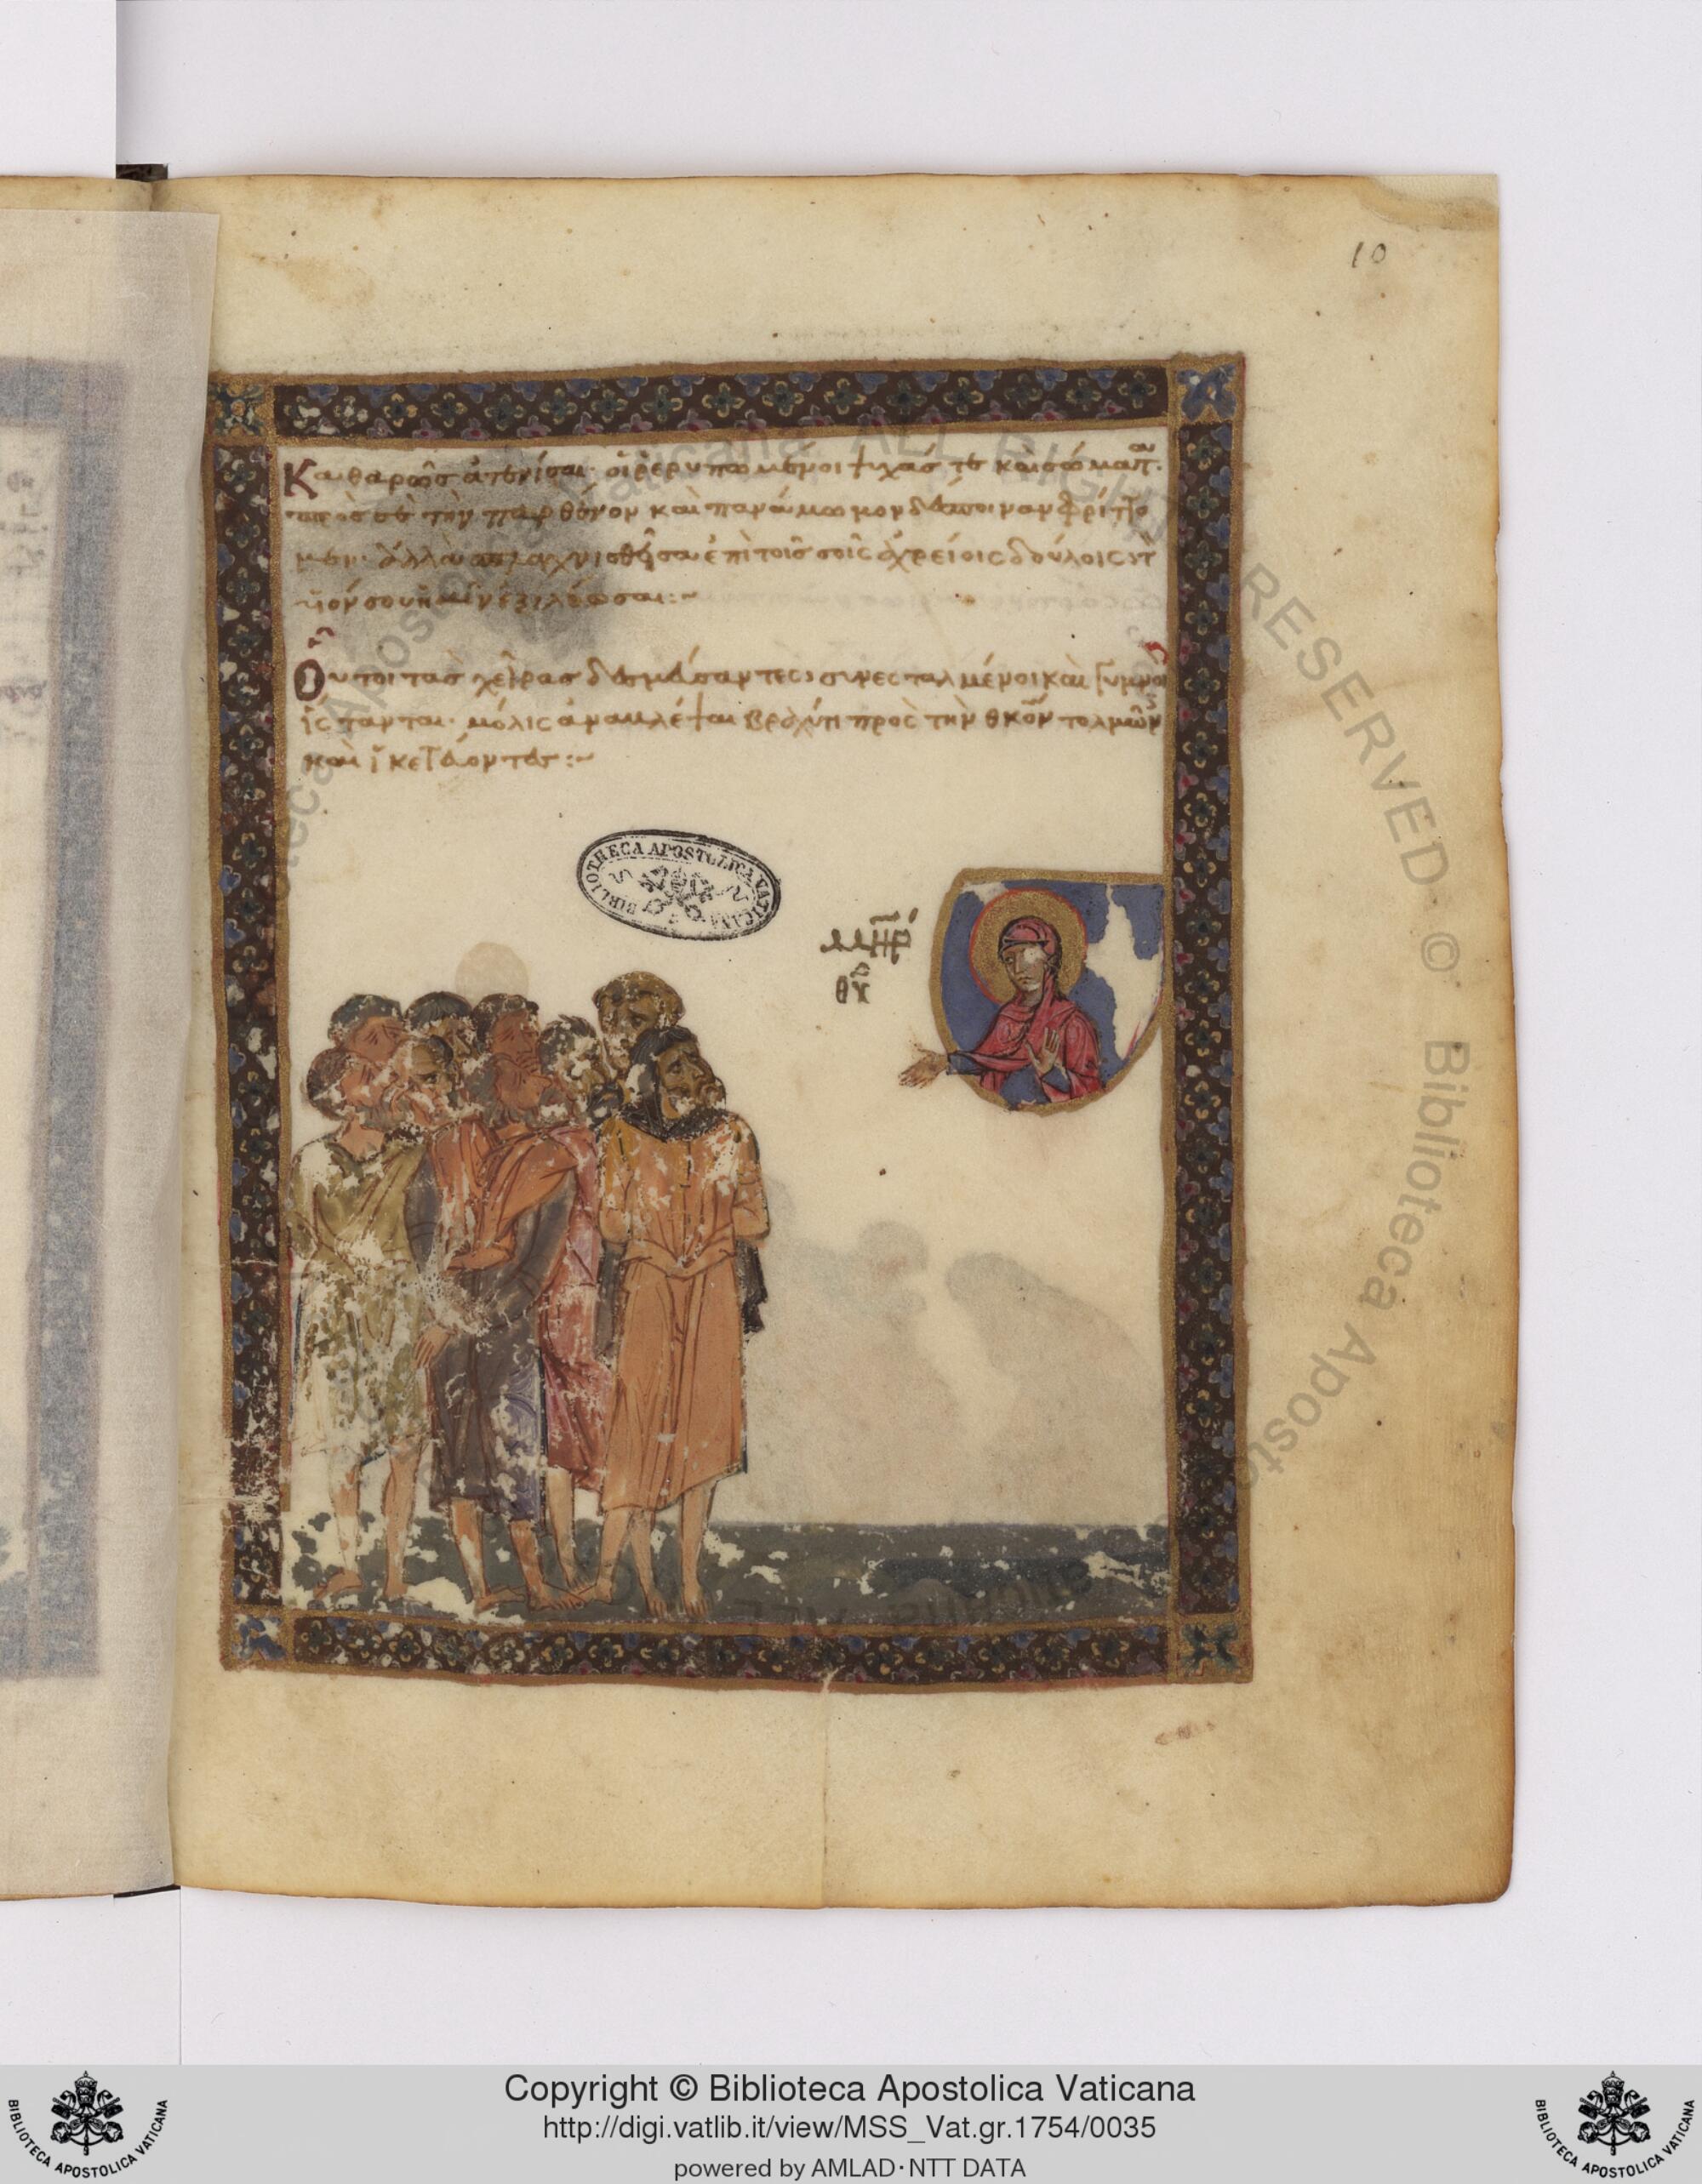 10
Καθαρῶς ἀτενίσαι· οἱ ῥερυπωμένοι ψυχάς τε καὶ σώματ
πρὸς σὲ τὴν παρθένον καὶ πανάμωμον δέσποιναν φρίττο
μεν· ἀλλὰ σπλαχνίσθησαι ἐπὶ τοῖς σοῖς ἀχρείοις δούλοις
υἱόν σου ἡμῖν ἐξιλέωσαι:~
Οὗτοι τὰς χεῖρας δεσμήσαντες συνεσταλμένοι καὶ γυμνοὶ
ἵστανται· μόλις ἀναβλέψαι βραχύ τι πρὸς τὴν θκον τολμῶν
καὶ ἱκετεύοντες:~
BIBLIOTHECA APOSTOLICA VATICANA
ΜΗΡ
ΘΥ
Biblioteca Apostolica Vaticana ALL RIGHTS RESERVED ©
Biblioteca Aposto
BIBLIOTECA APOSTOLICA VATICANA
Copyright © Biblioteca Apostolica Vaticana
http://digi.vatlib.it/view/MSS_Vat.gr.1754/0035
powered by AMLAD·NTT DATA
BIBLIOTECA APOSTOLICA VATICANA